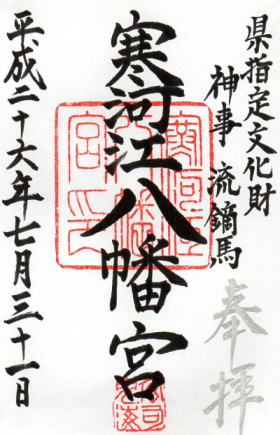 奉拝
県指定文化財
神事 流鏑馬
寒河江八幡宮
平成二十六年七月三十一日
寒河江
八幡
宮印